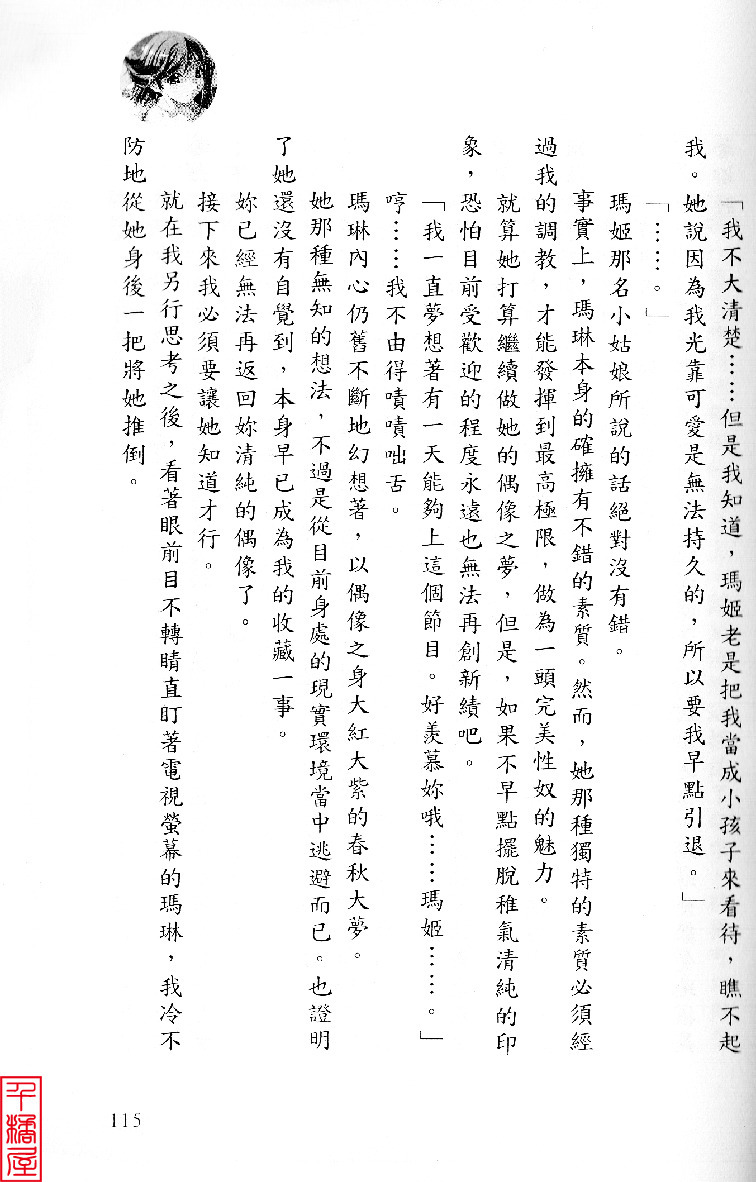 「我不大清楚……但是我知道，瑪姬老是把我當成小孩子來看待，瞧不起
我。她說因為我光靠可愛是無法持久的，所以要我早點引退。」
「……。」
瑪姬那名小姑娘所說的話絕對沒有錯。
事實上，瑪琳本身的確擁有不錯的素質。然而，她那種獨特的素質必須經
過我的調教，才能發揮到最高極限，做為一頭完美性奴的魅力。
就算她打算繼續做她的偶像之夢，但是，如果不早點擺脫稚氣清純的印
象，恐怕目前受歡迎的程度永遠也無法再創新績吧。
「我一直夢想著有一天能夠上這個節目。好羨慕妳哦……瑪姬……。」
哼……我不由得嘖嘖咄舌。
瑪琳內心仍舊不斷地幻想著，以偶像之身大紅大紫的春秋大夢。
她那種無知的想法，不過是從目前身處的現實環境當中逃避而已。也證明
了她還沒有自覺到，本身早已成為我的收藏一事。
妳已經無法再返回妳清純的偶像了。
接下來我必須要讓她知道才行。
就在我另行思考之後，看著眼前目不轉睛直盯著電視螢幕的瑪琳，我冷不
防地從她身後一把將她推倒。
115
千橘屋